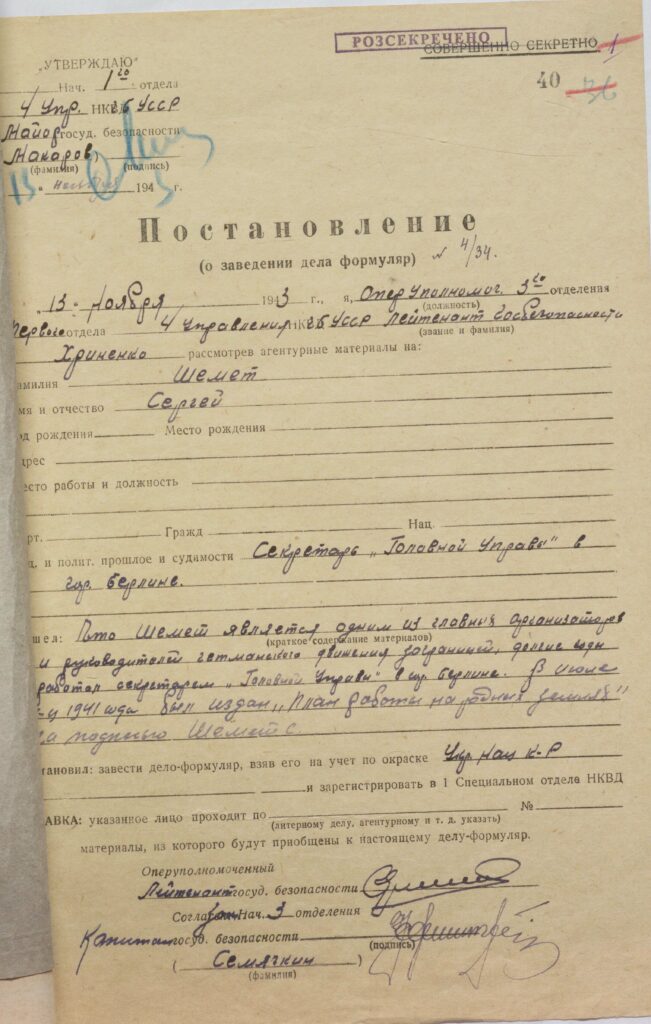 РОЗСЕКРЕЧЕНО
СОВЕРШЕННО СЕКРЕТНО 1
40 36
„УТВЕРЖДАЮ"
Нач. 1го отдела
4 Упр. НКГБ УССР
Майор госуд. безопасности
Макаров
(фамилия) (подпись)
13 " ноября 1943 г.
Постановление
(о заведении дела формуляр) № 4/34.
13 " ноября 1943 г., я, Оперуполномоч. 3го отделения
(должность)
Первого отдела 4 Управления НКГБ УССР Лейтенант Госбезопасности
(звание и фамилия)
Хриненко рассмотрев агентурные материалы на:
амилия Шемет
мя и отчество Сергей
од рождения Место рождения
дрес
есто работы и должность
рт. Гражд Нац.
ц. и полит. прошлое и судимости Секретарь „Головной Управы" в
гор. Берлине.
шел: Что Шемет является одним из главных организаторов
(краткое содержание материалов)
и руководителей гетманского движения заграницей, долгие годы
работал секретарем „Головной Управы" в гор. Берлине. В июле
м-ц 1941 года был издан „План работы на родных землях"
за подписью Шемет С.
тановил: завести дело-формуляр, взяв его на учет по окраске Укр. нац к-р
и зарегистрировать в I Специальном отделе НКВД
АВКА: указанное лицо проходит по №
(литерному делу, агентурному и т. д. указать)
материалы, из которого будут приобщены к настоящему делу-формуляр.
Оперуполномоченный
Лейтенант госуд. безопасности
Согласен: Зам Нач. 3 отделения
Капитан госуд. безопасности
(подпись)
( Семягкин )
(фамилия)